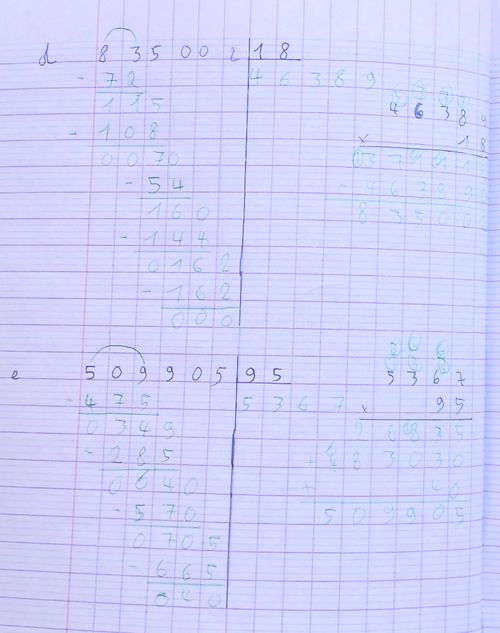 d 835002 18
- 72 46389
115 4638
- 108 × 18
0070
- 54
160 835002
- 144
0162
- 162
000
e 509905 95 5367
- 475 5367 × 95
0349 26835
- 285 + 483030
0640 + 40
- 570 509905
0705
- 665
040